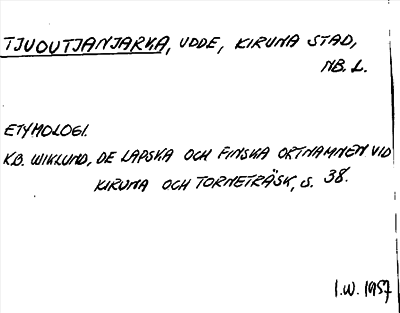 TJUOUTJANJARKA, UDDE, KIRUNA STAD,
NB. L.
ETYMOLOGI.
K.B. WIKLUND, DE LAPSKA OCH FINSKA ORTNAMNEN VID
KIRUNA OCH TORNETRÄSK, S. 38.
I.W. 1957